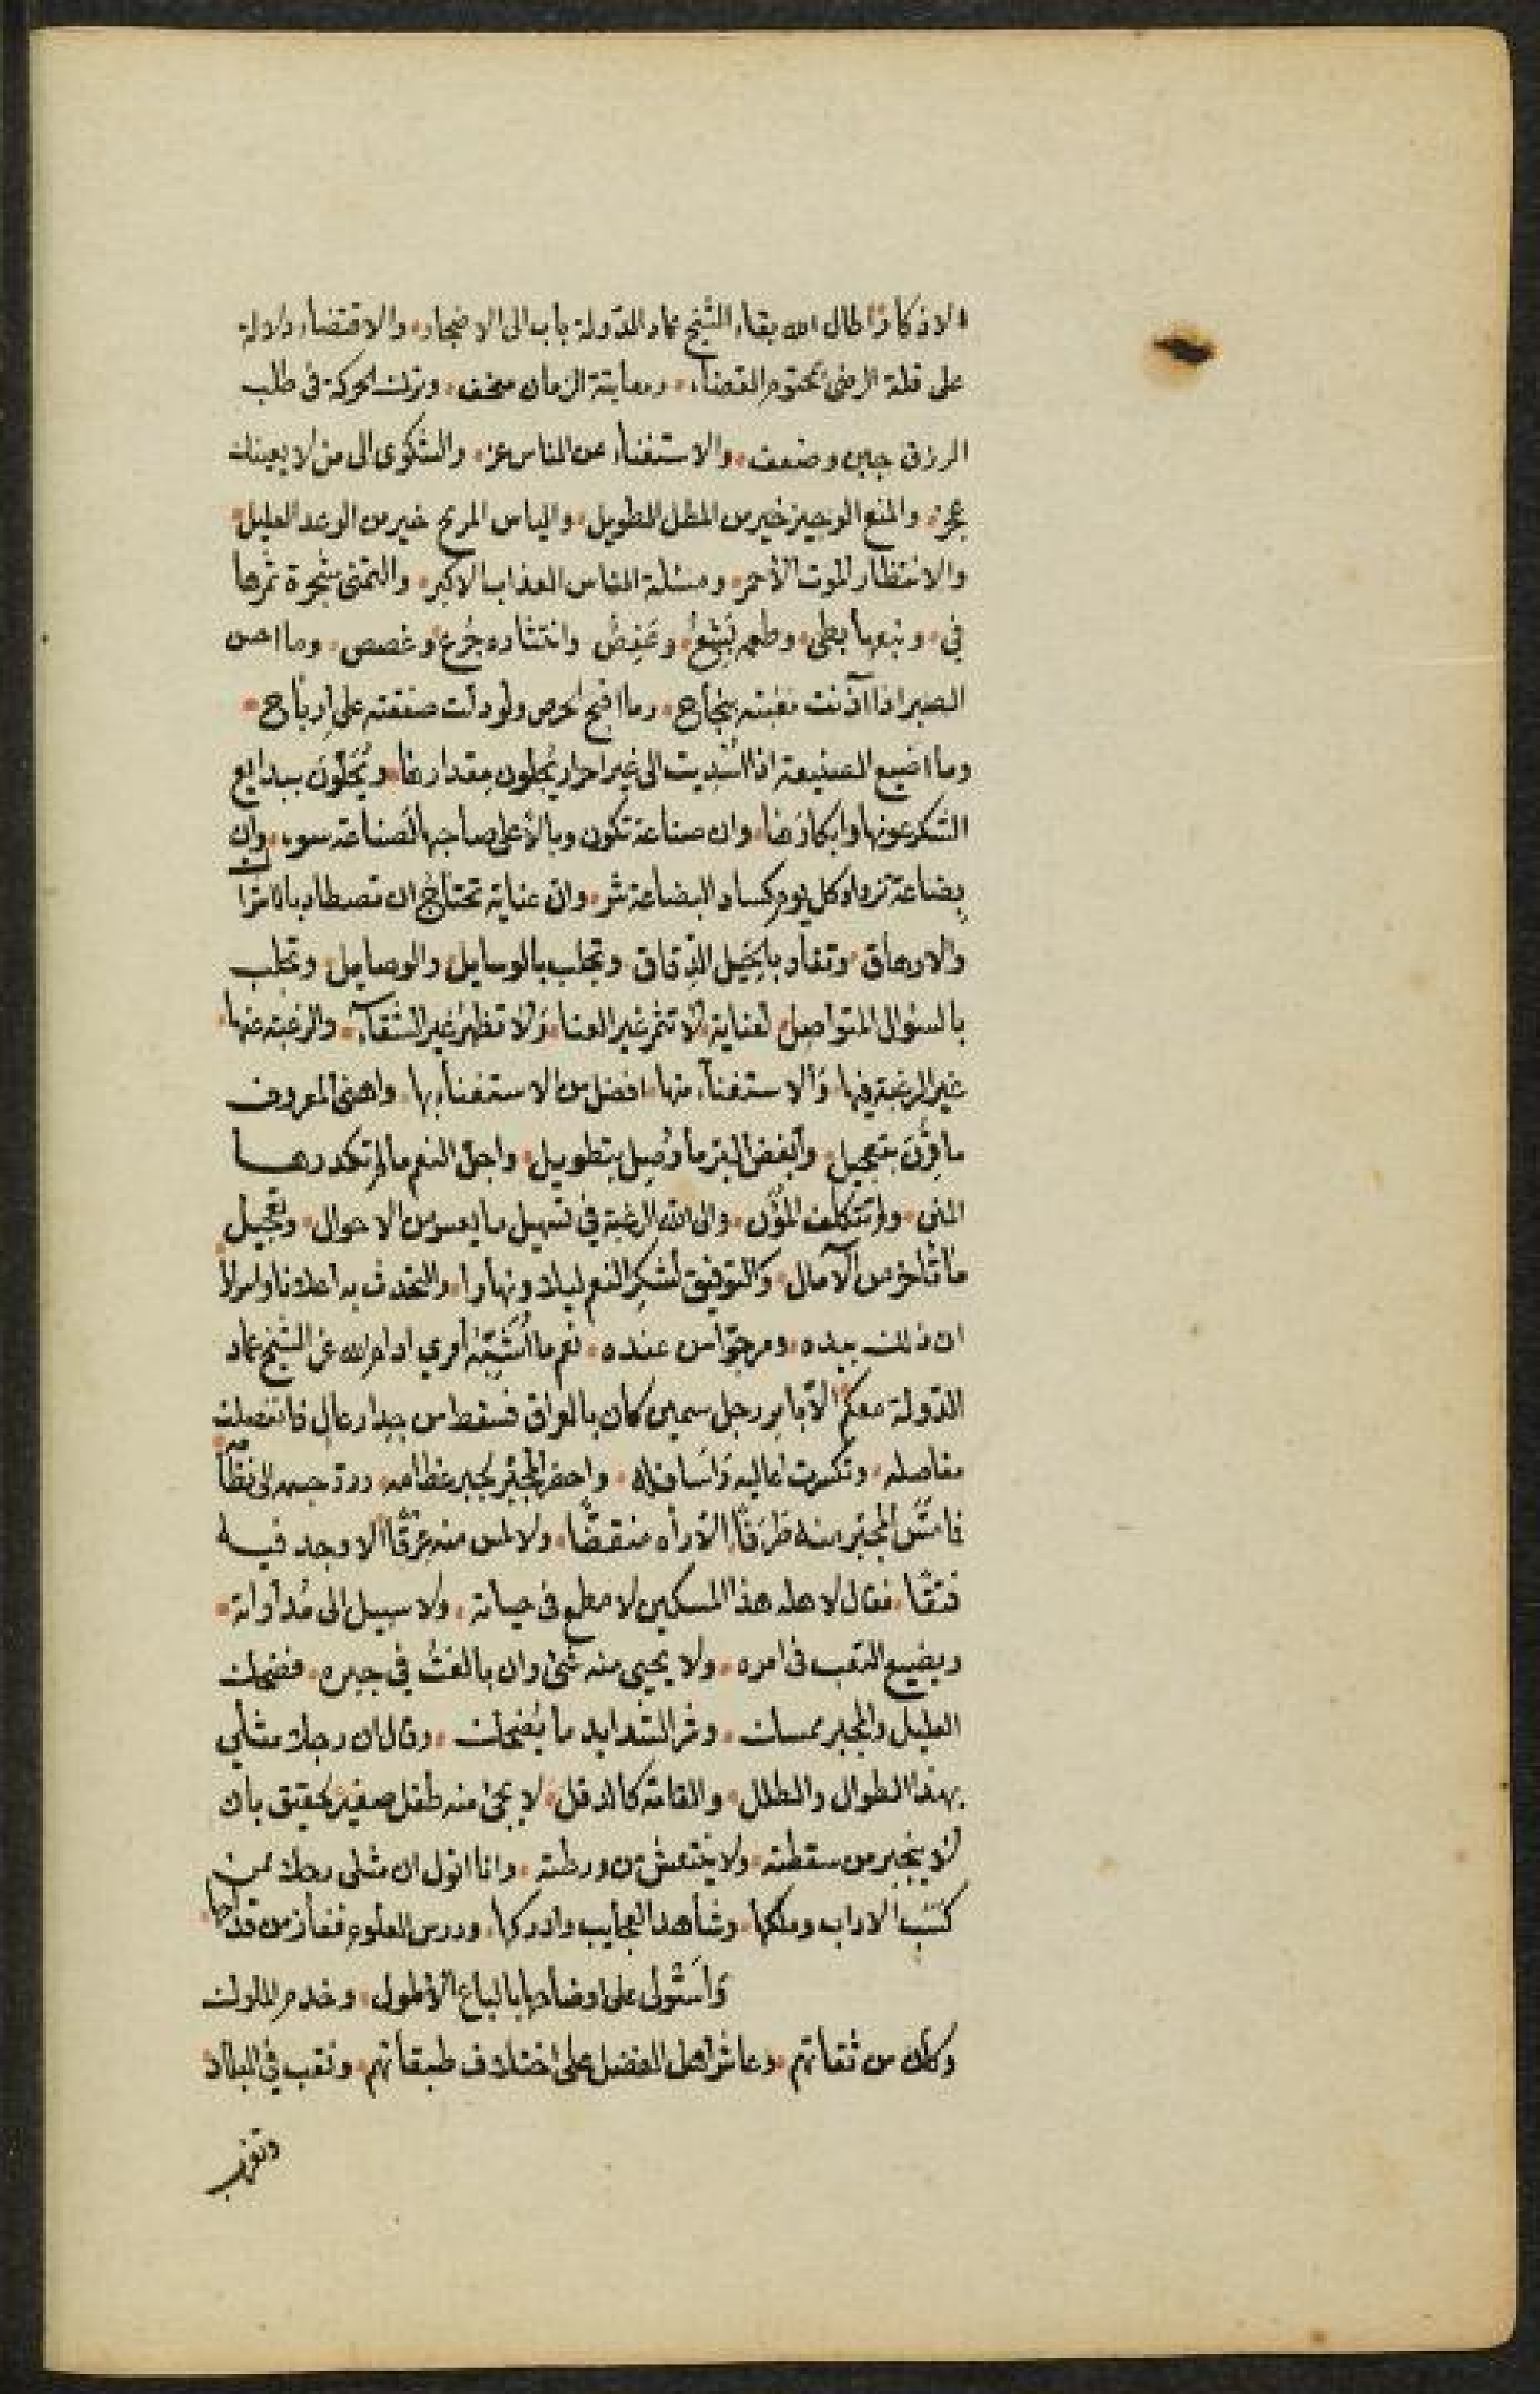 الاذكار اطال الله بقاء الشيخ عماد الدولة باب الى الاضجار والاقتضاء دلالة
على قلة الرضى بمحتوم القضاء ومعاتبة الزمان سخف وترك الحركة فى طلب
الرزق جبن وضعف والاستغناء عن الناس عز والشكوى الى من لا يعينك
عجز والمنع الوجيز خير من المطل الطويل والياس المريح خير من الوعد العليل
والانتظار الموت الأحمر ومسئلة الناس العذاب الاكبر والتمنى شجرة ثمرها
فى ونبعها بطى وطعم بشع وانتشاره جرع وغصص وما احسن
الصبر اذا آذنت مغبته بنجاح وما اقبح الحرص ولو دلت صفقته على ارباح
وما اضيع الصنيعة اذا اسديت الى غير احرار يجلون مقدارها ويجلون ببدايع
الشكر عونها وابكارها وان صناعة تكون وبالا على صاحبها لصناعة سوء وان
بضاعة تزداد كل يوم كساد البضاعة شر وان عناية تحتاج ان تصطاد بالاشرا
والارهاق وتقاد بالحيل الدقاق وتجلب بالوسايل والوصايل وتحلب
بالسؤال المتواصل لعناية لا تثمر غير العنا ولا تظهر غير الشقاء والرغبة عنها
غير الرغبة فيها والاستغناء منها افضل من الاستغناء بها واهنى المعروف
ما قرن بتعجيل وابغض البر ما وصل بتطويل واجل النعم ما لم تكدرها
المنى ولم تتكلف المؤن والى الله الرغبة فى تسهيل ما يعسر من الاحوال وتعجيل
ما تأخر من الآمال والتوفيق لشكر النعم ليلا ونهارا والتحدث به اعلانا واسرارا
ان ذلك بيده ومرجوا من عنده نعم ما اشبه امري ادام الله عز الشيخ عماد
الدولة معكم الا بامر رجل سمين كان بالعراق فسقط من جدار عال فانفصلت
مفاصله وتكسرت اعاليه واسافله واحضر المجبر لجبر عظامه ورد جسمه الى نظا
فامس المجبر منه طرفا الا رأه منقضا ولا لمس منه عرقا الا وجد فيه
فتقا فقال لاهله هذا المسكين لا مطمع فى حياته ولا سبيل الى مداواته
ويضيع التعب فى امره ولا يجيى منه شئ وان بالغت فى جبره فضحك
العليل والمجبر ممسك وشر الشدايد ما يضحك وقال ان رجلا مثلي
بهذا الطوال والطلل والقامة كالدقل لا يجئ منه طفل صغير لحقيق بان
لا ينجبر من سقطته ولا ينتعش من ورطته وانا اقول ان مثلى رجلا ممن
كتب الاداب وملكها وشاهد العجايب وادركها ودرس العلوم ففاز من قداحها
واستولى على اوضاحها بالباع الأطول وخدم الملوك
وكان من ثقاتهم وعاشر اهل الفضل على اختلاف طبقاتهم ونقب فى البلاد
وتغرب